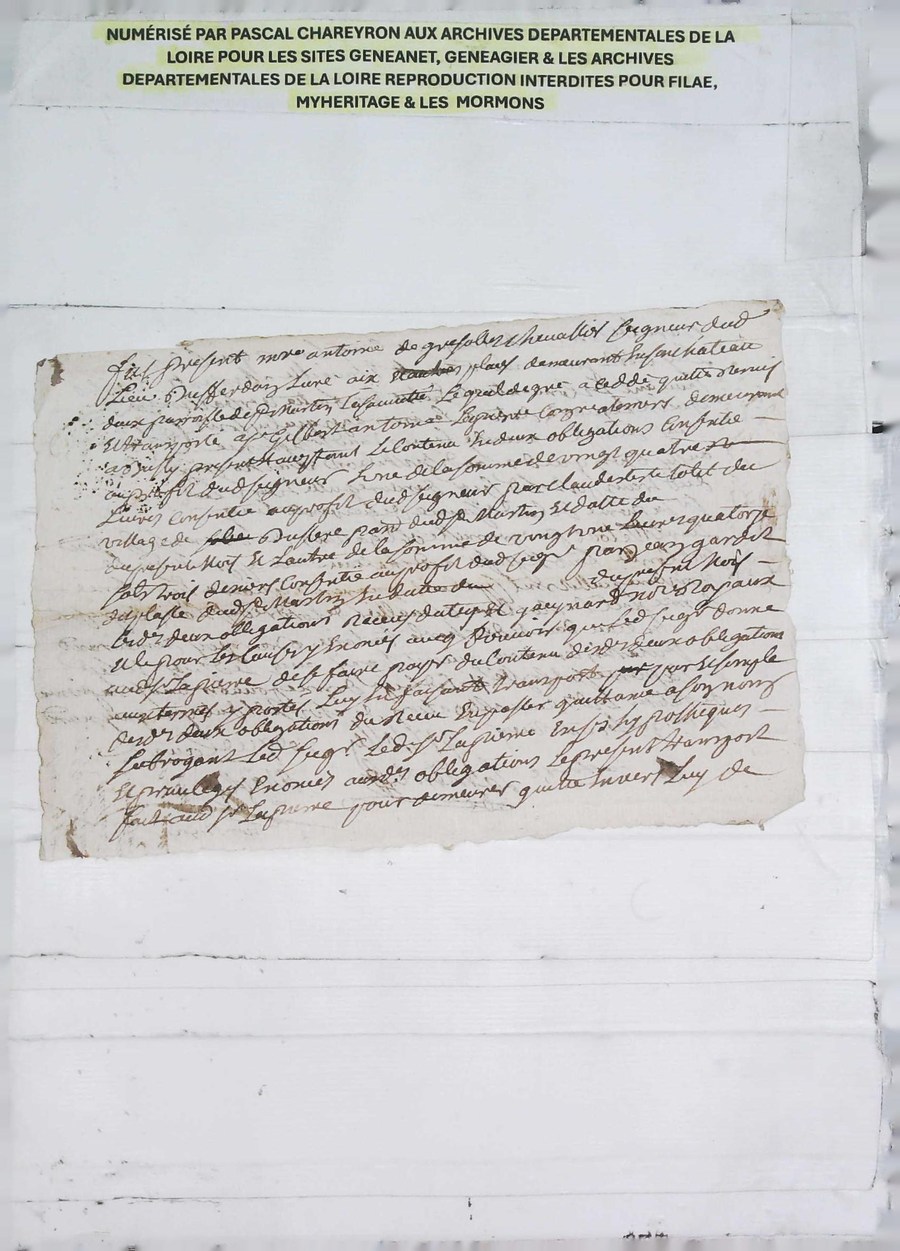 NUMÉRISÉ PAR PASCAL CHAREYRON AUX ARCHIVES DEPARTEMENTALES DE LA
LOIRE POUR LES SITES GENEANET, GENEAGIER & LES ARCHIVES
DEPARTEMENTALES DE LA LOIRE REPRODUCTION INTERDITES POUR FILAE,
MYHERITAGE & LES MORMONS
fut present mre antoine de gresolles chevallier seigneur dud
Lieu aix demeurant en son chateau
daix parroisse de St Martin La sauveté Lequel de gré a ceddé quitté remis
Et transporté a Sr Gilbert antoine Lapierre demeurant
present Le Contenu En deux obligations Consentie
au profit dud seigneur Lune de la somme de vingt quatre
Livres Consentie au profit dud seigneur par Claude
village de parr dud St Martin En datte du
du present mois Et Lautre de la somme de vingt une Livres quatorze
sols trois deniers Consentie au profit dud seigr par Jean
dud St Martin En datte du du present mois
Lesd deux obligations Receues nores Royaux
Et ce pour Les Causes y Enoncés avecq pouvoir que Led seigr donne
aud Sr Lapierre de se faire payer du Contenu desd deux obligations
aux termes y portés Luy En faisant transport par Et simple
desd deux obligations du Receu En passer quittance a son nom
subrogant Led seigr Led Sr Lapierre En ses hypotheques
Et privileges Enoncés auxd obligations Le present transport
fait aud Sr Lapierre pour demeurer quitte Envers Luy de